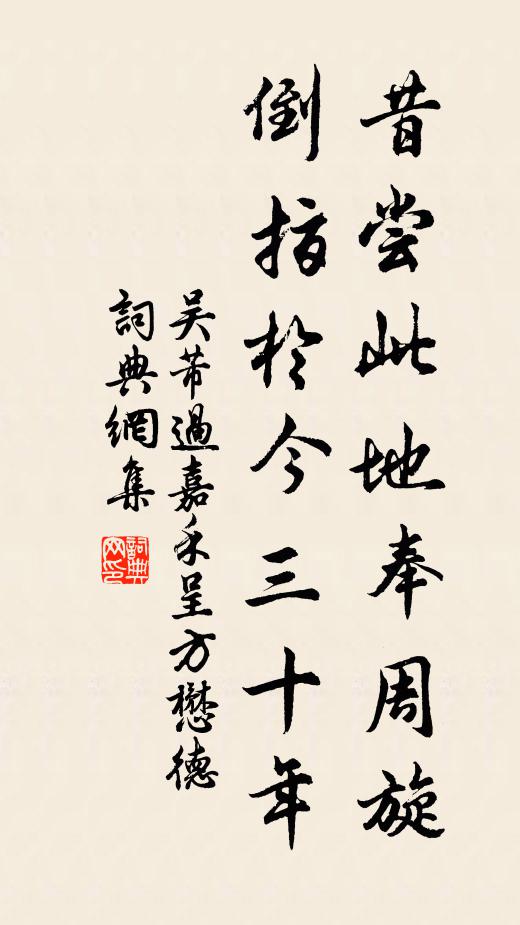 昔尝此地奉周旋
倒指於今三十年
吴芾過嘉禾呈方懋德
詞典網集
詞典网印